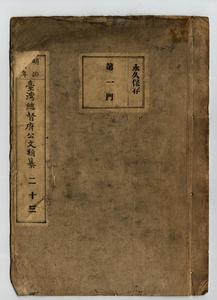 永久保存
第一門
明治
年
臺灣總督府公文類纂
二十三